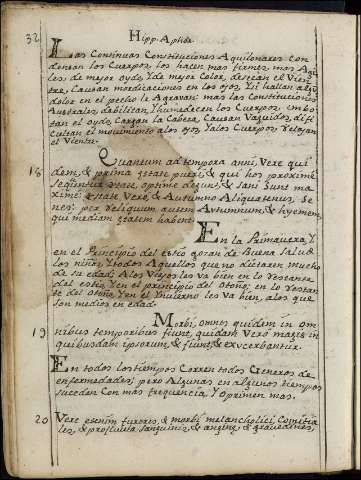 32 Hipp. Aphor.
Las Continuas Constituciones Aquilonares con
densan los Cuerpos, los hacen mas firmes, mas Agi
les, de mejor oydo, Y de mejor Color, desecan el Vien
tre, Causan mordicaciones en los ojos, Y si hallan algũ
dolor en el pecho le Agravan: mas las Constituciones
Australes, debilitan, Y humedecen los Cuerpos, embo
tan el oydo, Cargan la Cabeza, Causan Vaguidos, difi
cultan el movimiento a los ojos, Y a los Cuerpos, relajan
el Vientre.
18 Quantum ad tempora anni, Vere qui
dem, & prima ætate pueri, & qui hos proximé
sequuntur ætate, optimé degunt, & sani sunt ma
ximé: æstate Vero, & Autumno Aliquatenus, se
nes: per reliquum autem Autumnum, & hyemem,
qui mediam ætatem habent.
En la Primavera, Y
en el Principio del estio gozan de Buena Salud
los niños, Y todos Aquellos que no distaren mucho
de su edad; A los Viejos les va bien en lo restante
del estio, Y en el principio del Otoño; en lo restan
te del Otoño, Y en el Invierno les va bien, a los que
son medios en edad.
19 Morbi, omnes quidem in om
nibus temporibus fiunt, quidam Vero magis in
quibusdam ipsorum, & fiunt, & exacerbantur.
En todos los tiempos Corren todos Generos de
enfermedades; pero Algunas en algunos tiempos
suceden Con mas frequencia, Y oprimen mas.
20 Vere etenim furores, & morbi melancholici, Comitia
les, & profluvia sanguinis, & anginæ, & gravedines,